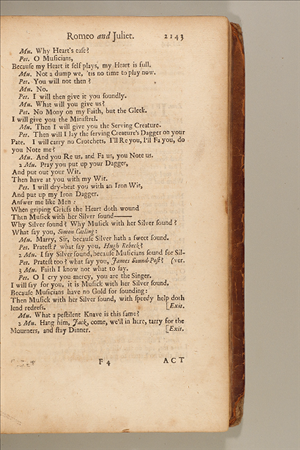 Romeo and Juliet. 2143
Mu. Why Heart's ease?
Pet. O Musicians,
Because my Heart it self plays, my Heart is full.
Mu. Not a dump we, 'tis no time to play now.
Pet. You will not then?
Mu. No.
Pet. I will then give it you soundly.
Mu. What will you give us?
Pet. No Mony on my Faith, but the Gleek.
I will give you the Minstrel.
Mu. Then I will give you the Serving Creature.
Pet. Then will I lay the serving Creature's Dagger on your
Pate. I will carry no Crotchets, I'll Re you, I'll Fa you, do
you Note me?
Mu. And you Re us, and Fa us, you Note us.
2 Mu. Pray you put up your Dagger,
And put out your Wit.
Then have at you with my Wit.
Pet. I will dry-beat you with an Iron Wit,
And put up my Iron Dagger.
Answer me like Men:
When griping Griefs the Heart doth wound
Then Musick with her Silver sound——
Why Silver sound? Why Musick with her Silver sound?
What say you, Simon Catling?
Mu. Marry, Sir, because Silver hath a sweet sound.
Pet. Pratest? what say you, Hugh Rebeck?
2 Mu. I say Silver sound, because Musicians sound for Sil-
Pet. Pratest too? what say you, James Sound-Post? (ver.
3 Mu. Faith I know not what to say.
Pet. O I cry you mercy, you are the Singer.
I will say for you, it is Musick with her Silver sound,
Because Musicians have no Gold for sounding:
Then Musick with her Silver sound, with speedy help doth
lend redress. [Exit.
Mu. What a pestilent Knave is this same?
2 Mu. Hang him, Jack, come, we'll in here, tarry for the
Mourners, and stay Dinner. [Exit.
F 4 ACT